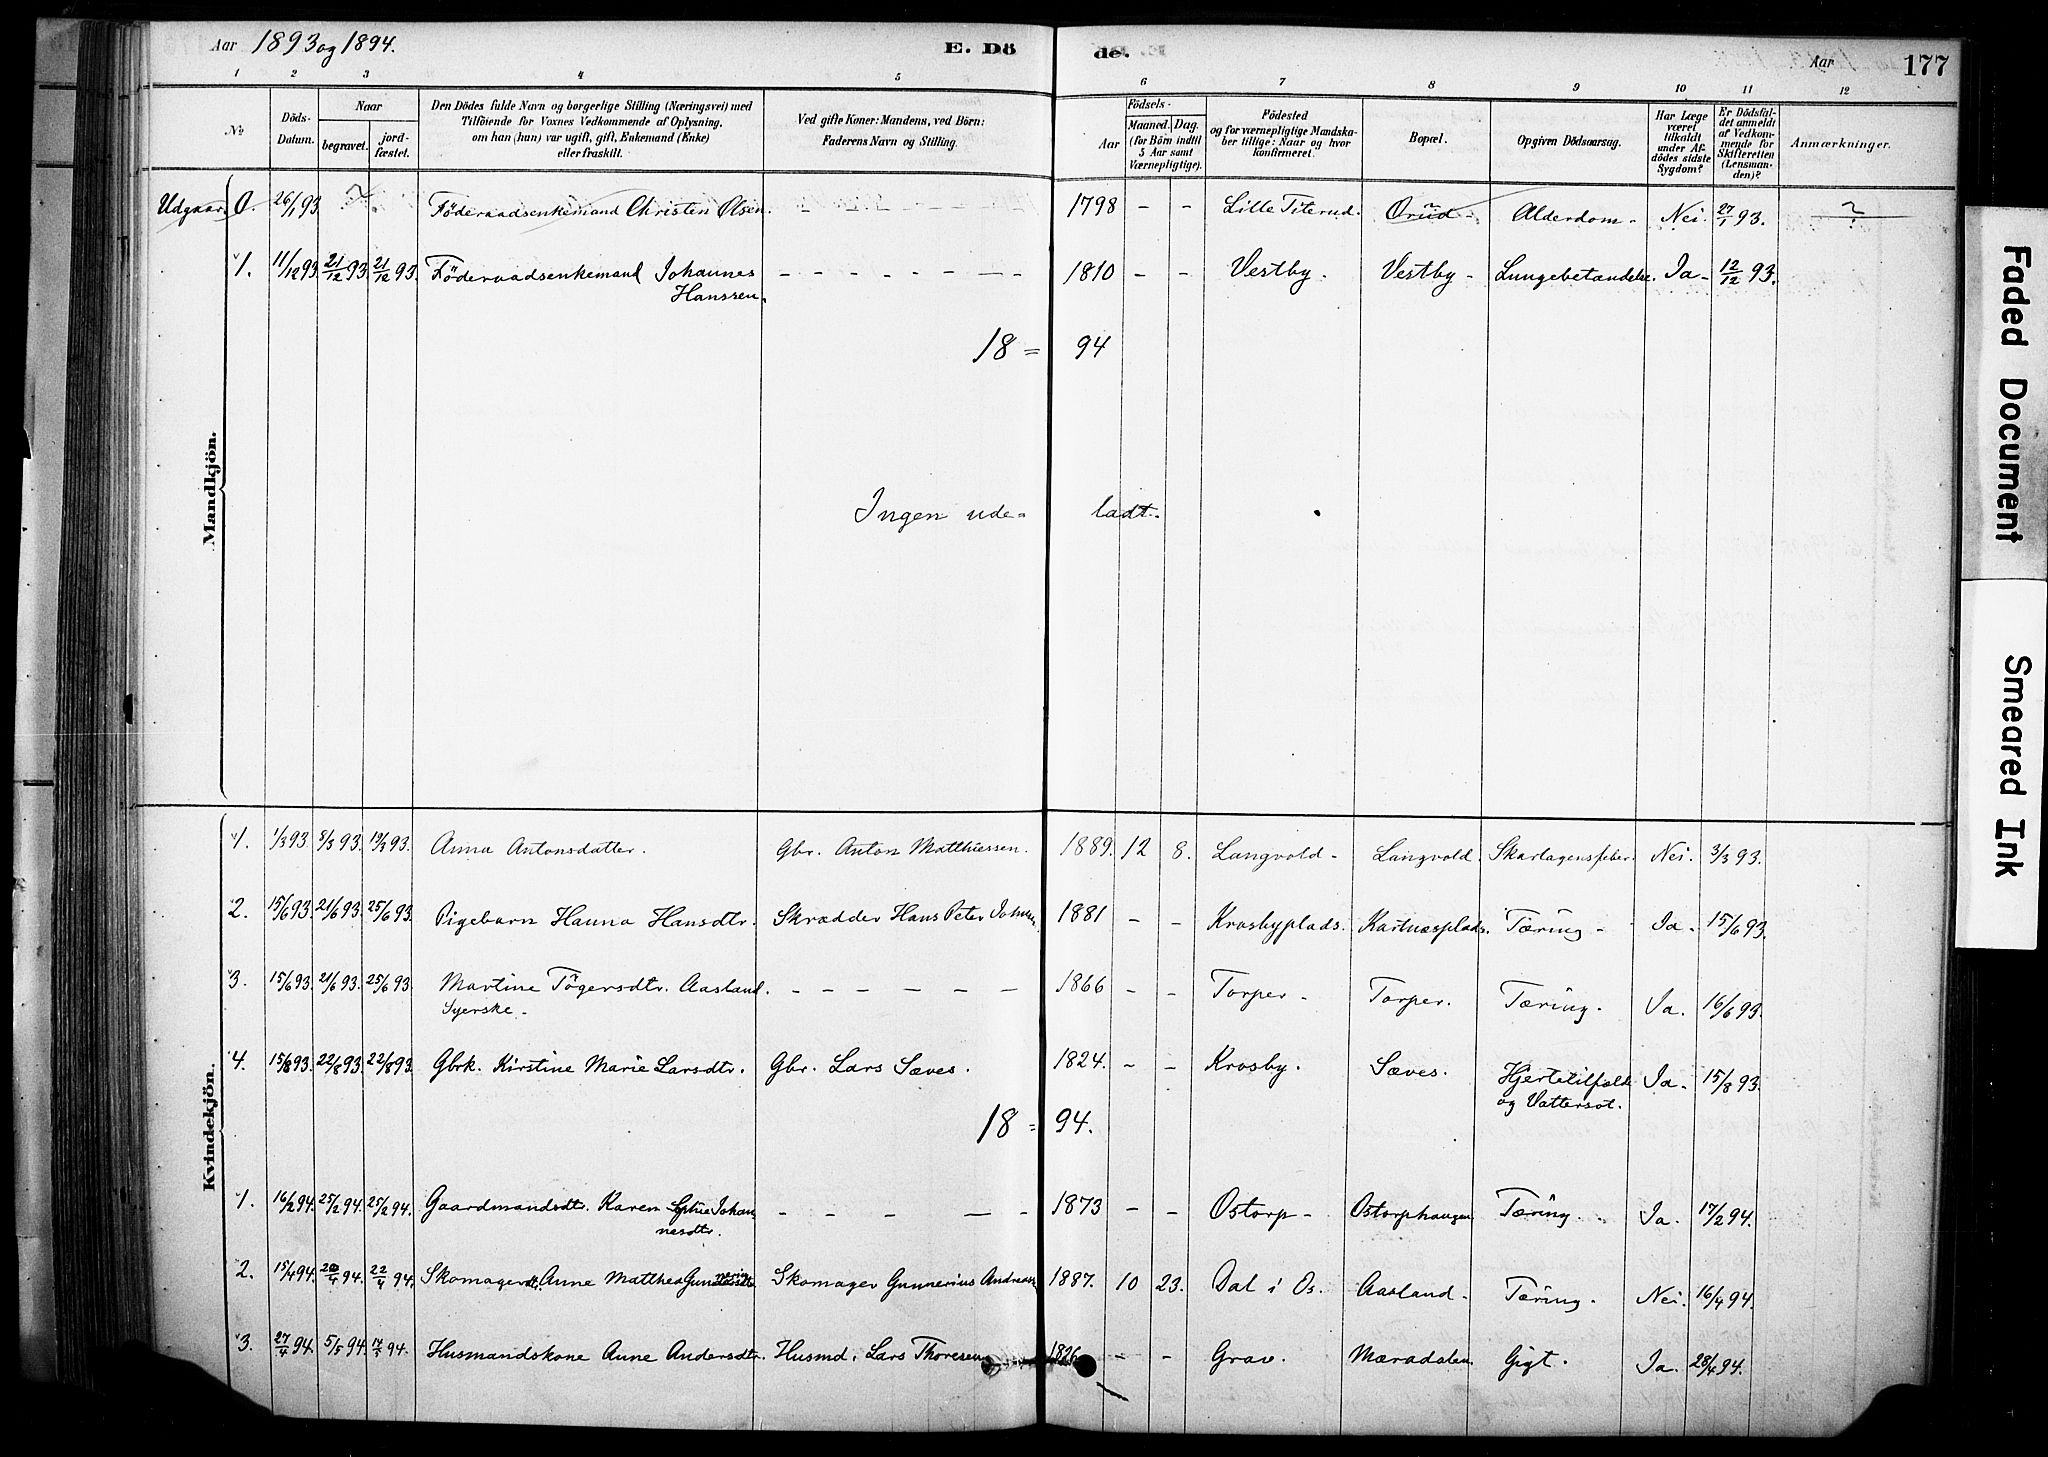 Aar 1893 og 1894. E. Dö de. Aar 177
1 2 3 4 5 6 7 8 9 10 11 12
No Döds-Datum. Naar begravet. jord-fæstet. Den Dödes fulde Navn og borgerlige Stilling (Næringsvei) med Tilföiende for Voxnes Vedkommende af Oplysning, om han (hun) var ugift, gift, Enkemand (Enke) eller fraskilt. Ved gifte Koner: Mandens, ved Börn: Faderens Navn og Stilling. Födsels- Aar Maaned. Dag. (for Börn indtil 5 Aar samt Værnepligtige). Födested og for værnepligtige Mandskaber tillige: Naar og hvor konfirmeret. Bopæl. Opgiven Dödsaarsag. Har Læge været tilkaldt under Afdödes sidste Sygdom? Er Dödsfaldet anmeldt af Vedkommende for Skifteretten (Lensmanden)? Anmærkninger.
Mandkjön.
Udgaar. 0. 26/1 93. Föderaadsenkemand Christen Olsen. - - - - - - 1798 - - Lille Titerud. Orüd - Alderdom - Nei. 27/1 93.
1. 11/12 93. 21/12 93. 21/12 93. Föderaadsenkemand Johannes Hanssen. - - - - - - 1810 - - Vestby. Vestby - Lungebetændelse. Ja - 12/12 93.
18 = 94
Ingen ude- ladt.
Kvindekjön.
1. 1/3 93. 8/3 93. 19/3 93. Anna Antonsdatter. Gbr. Anton Matthiessen. 1889. 12 8. Langvold - Langvold. Skarlagensfeber. Nei. 3/3 93.
2. 15/6 93. 21/6 93. 25/6 93. Pigebarn Hanna Hansdtr. Skrædder Hans Peter 1881 - - Krosbyplads. Kartnesplads. Tæring - Ja - 15/6 93.
3. 15/6 93. 21/6 93. 25/6 93. Martine Tögersdtr. Aasland. - - - - - - 1866 - - Torper - Torper. Tæring. Ja. 16/6 93.
Syerske.
4. 15/8 93. 22/8 93. 22/8 93. Gbrk. Kirstine Marie Larsdtr. Gbr. Lars Sæves. 1824. - - Krosby. Sæves. Hjertetilfælde og Vattersot. Ja - 15/8 93.
18 = 94.
1. 16/2 94. 25/2 94. 25/2 94. Gaardmandsdtr. Karen Sophie Johannesdtr. - - - - - 1873 - - Ostorp - Ostorphaugen Tæring. Ja. 17/2 94.
2. 15/4 94. 20/4 94. 22/4 94. Skomagerdt. Anne Matthea Skomager Gunnerius Andreas 1887. 10 23. Dal i Os. Aasland. Tæring. Nei. 16/4 94.
3. 27/4 94. 5/5 94. 17/5 94. Husmandskone Anne Andersdtr. Husmd. Lars Thoresen 1826 - - Grav. Mæradalen Gigt. Ja. 28/4 94.
Faded Document
Smeared Ink